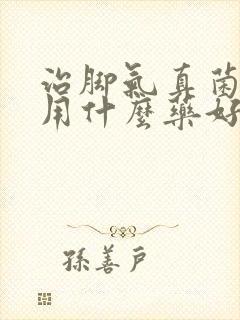 治脚氣真菌
用什麼藥好
孫善戶